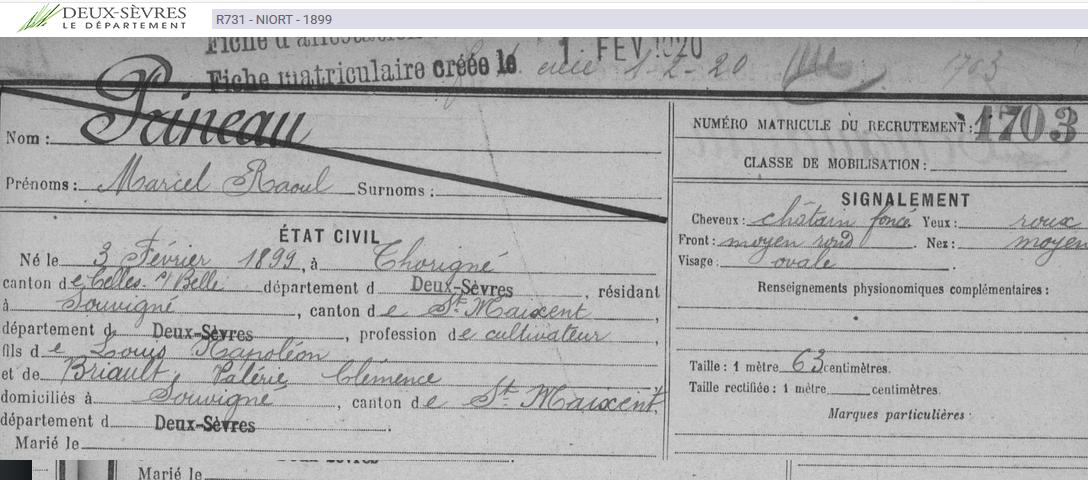 DEUX-SÈVRES
LE DÉPARTEMENT
R731 - NIORT - 1899
Fiche d'
Fiche matriculaire créée le 1 FEV. 1920 créée 1-2-20 1703
Nom : Prineau
NUMÉRO MATRICULE DU RECRUTEMENT : 1703
CLASSE DE MOBILISATION :
Prénoms : Marcel Raoul Surnoms :
SIGNALEMENT
Cheveux : châtain foncé Yeux : roux
Front : moyen rond . Nez : moyen
Visage : ovale .
Renseignements physionomiques complémentaires :
Taille : 1 mètre 63 centimètres.
Taille rectifiée : 1 mètre centimètres.
Marques particulières
ÉTAT CIVIL
Né le 3 Février 1899, à Thorigné
canton de Celles-s/Belle département d Deux-Sèvres, résidant
à Souvigné, canton de St Maixent,
département d Deux-Sèvres, profession de cultivateur,
fils de Louis Napoléon
et de Briault, Valérie Clémence
domiciliés à Souvigné, canton de St Maixent,
département d Deux-Sèvres.
Marié le
Marié le